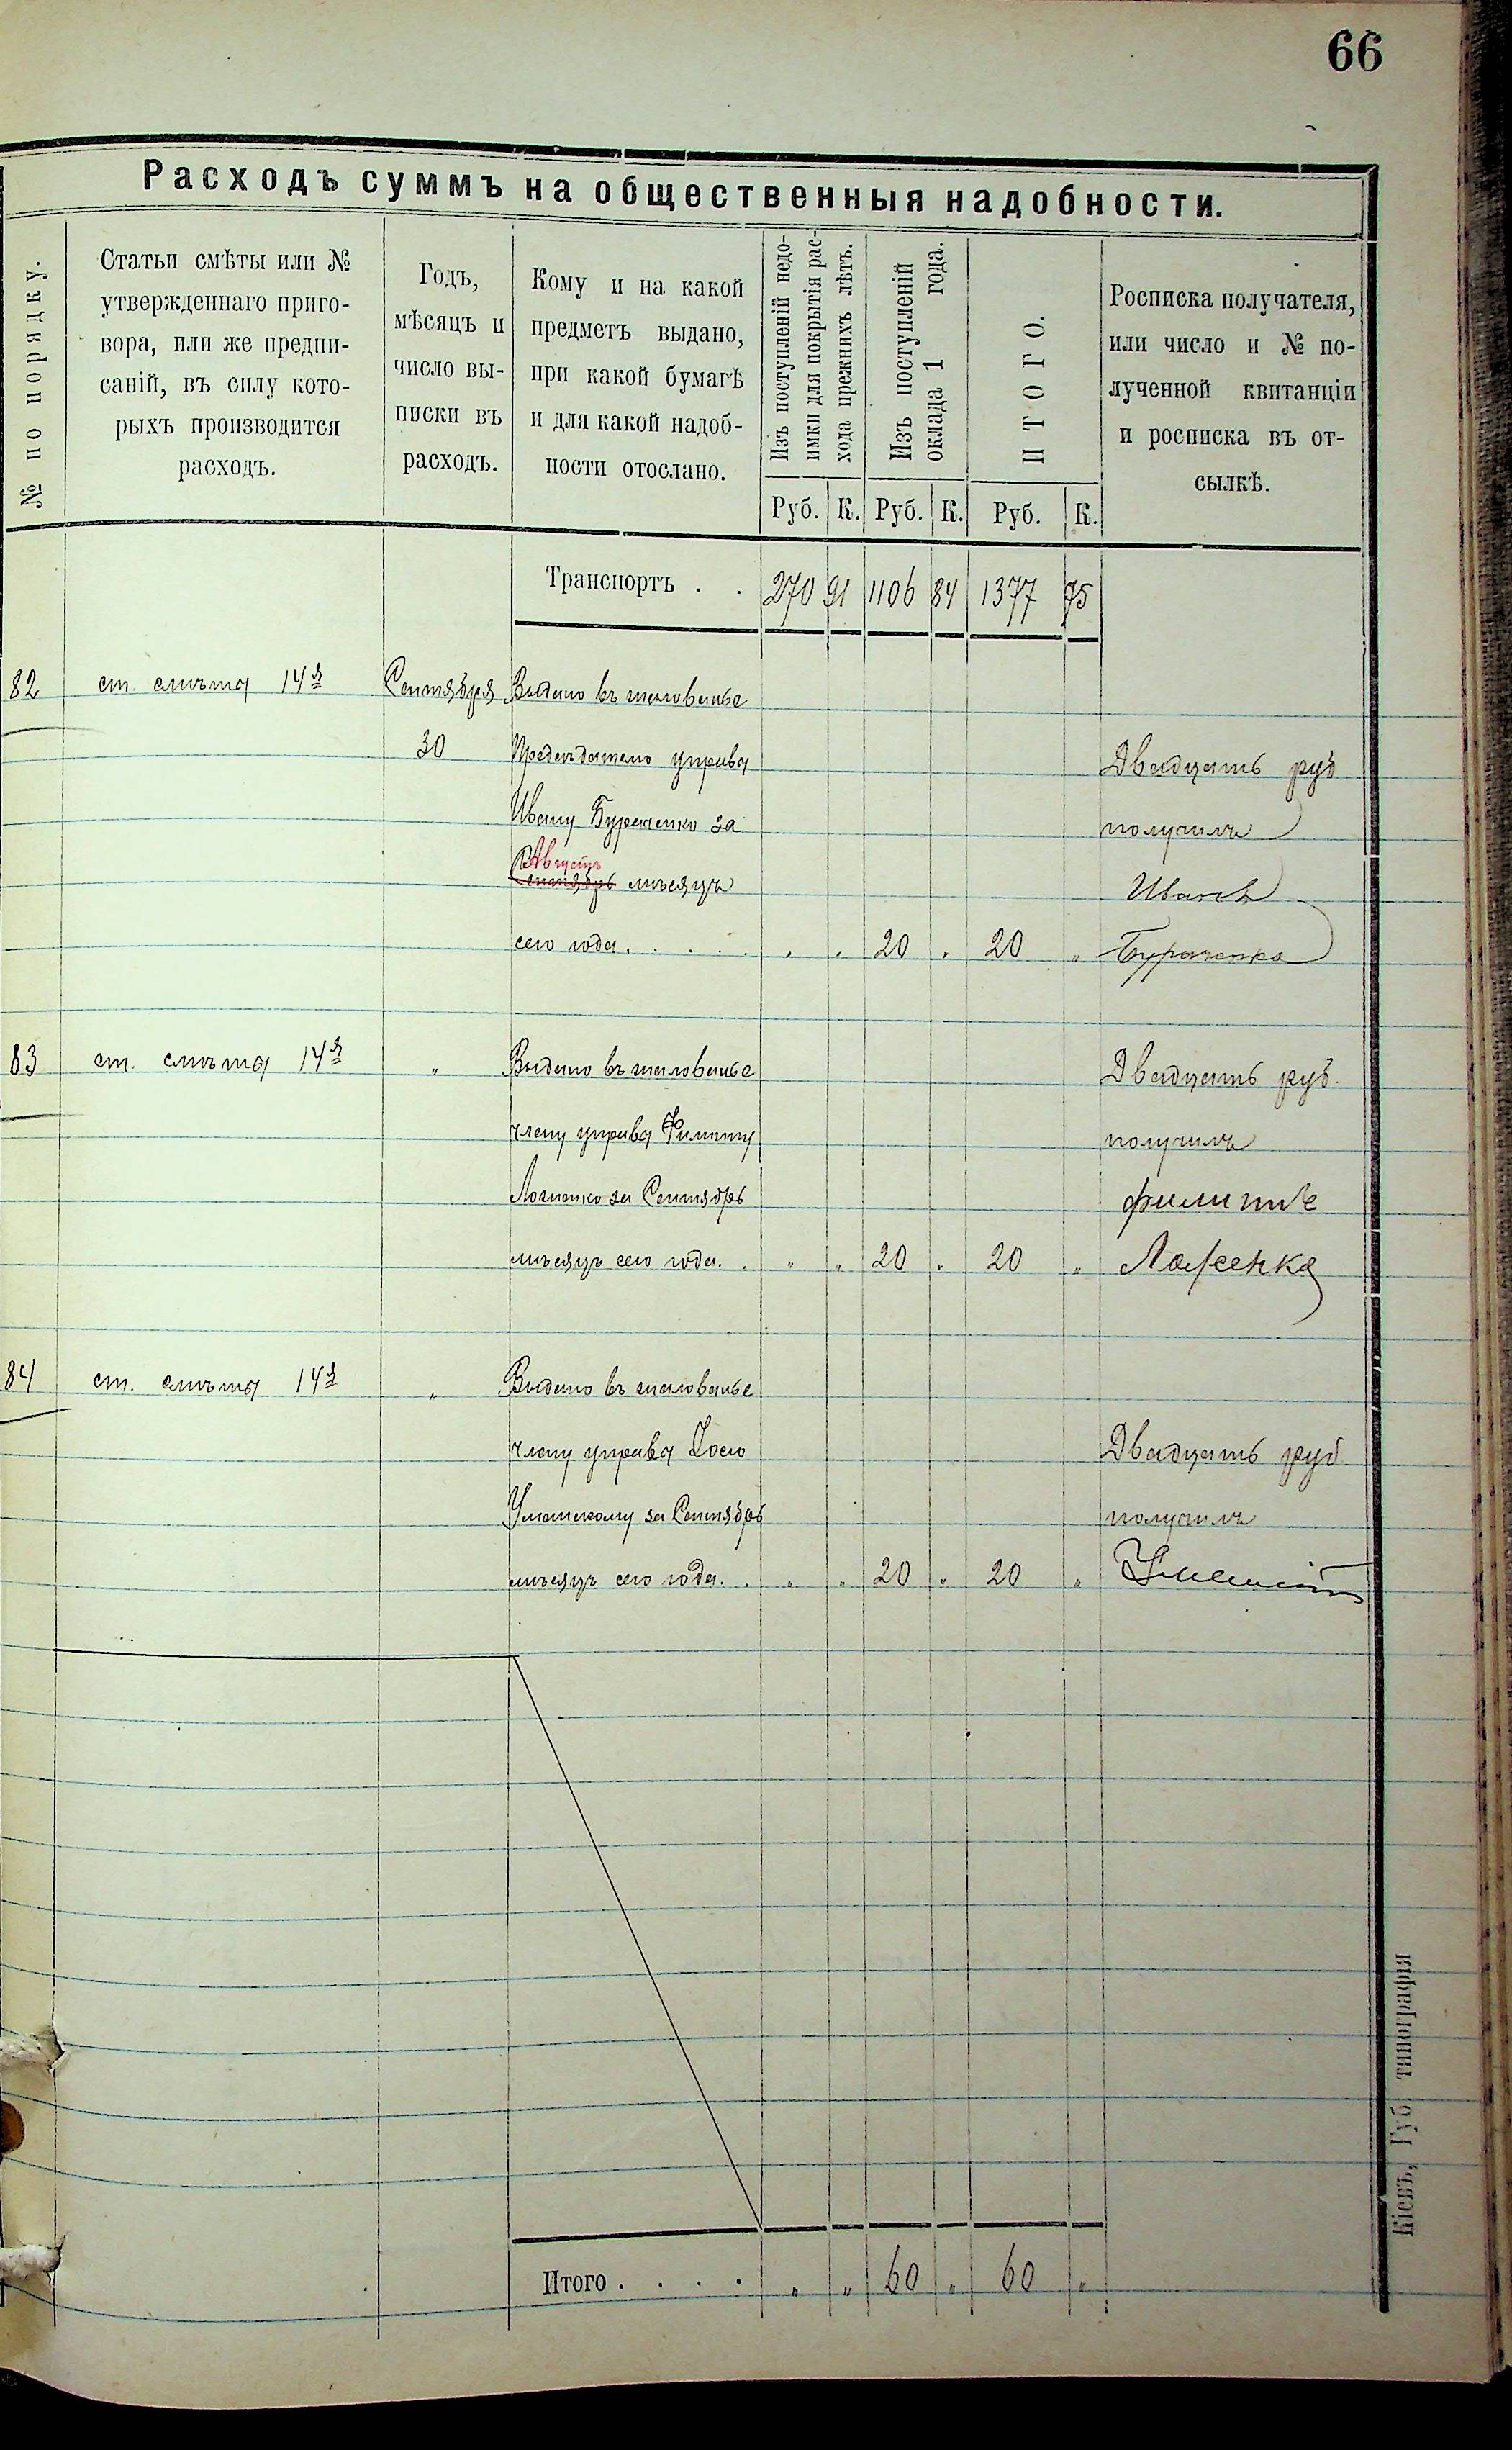 66
Расходъ суммъ на общественныя надобности.
№ по порядку.
Статьи смѣты или №
утвержденнаго приго-
вора, или же предпи-
саній, въ силу кото-
рыхъ производится
расходъ.
Годъ,
мѣсяцъ и
число вы-
писки въ
расходъ.
Кому и на какой
предметъ выдано,
при какой бумагѣ
и для какой надоб-
ности отослано.
Изъ поступленій недо-
имки для покрытія рас-
хода прежнихъ лѣтъ.
Изъ поступленій
оклада 1 года.
ИТОГО.
Росписка получателя,
или число и № по-
лученной квитанціи
и росписка въ от-
сылкѣ.
Руб. К. Руб. К. Руб. К.
Транспортъ . . 270 91 1106 84 1377 75
82 ст. смѣты 14я Сентября Выдано въ жалованье
30 Предсѣдателю управы Двадцать руб
Ивану Бураченко за получилъ
Августъ
Сентябрь мѣсяцъ Иванъ
сего года. . . . . „ „ 20 „ 20 „ Бураченко
83 ст. смѣты 14я „ Выдано въ жалованье Двадцать руб.
члену управы Филипу получилъ
за Сентябрь филипъ
мѣсяцъ сего года. . „ „ 20 „ 20 „
84 ст. смѣты 14я „ Выдано въ жалованье
члену управы Двадцать руб
Уманскому за Сентябрь получилъ
мѣсяцъ сего года. . „ „ 20 „ 20 „
Итого . . . . „ „ 60 „ 60 „
Кіевъ, Губ типографія